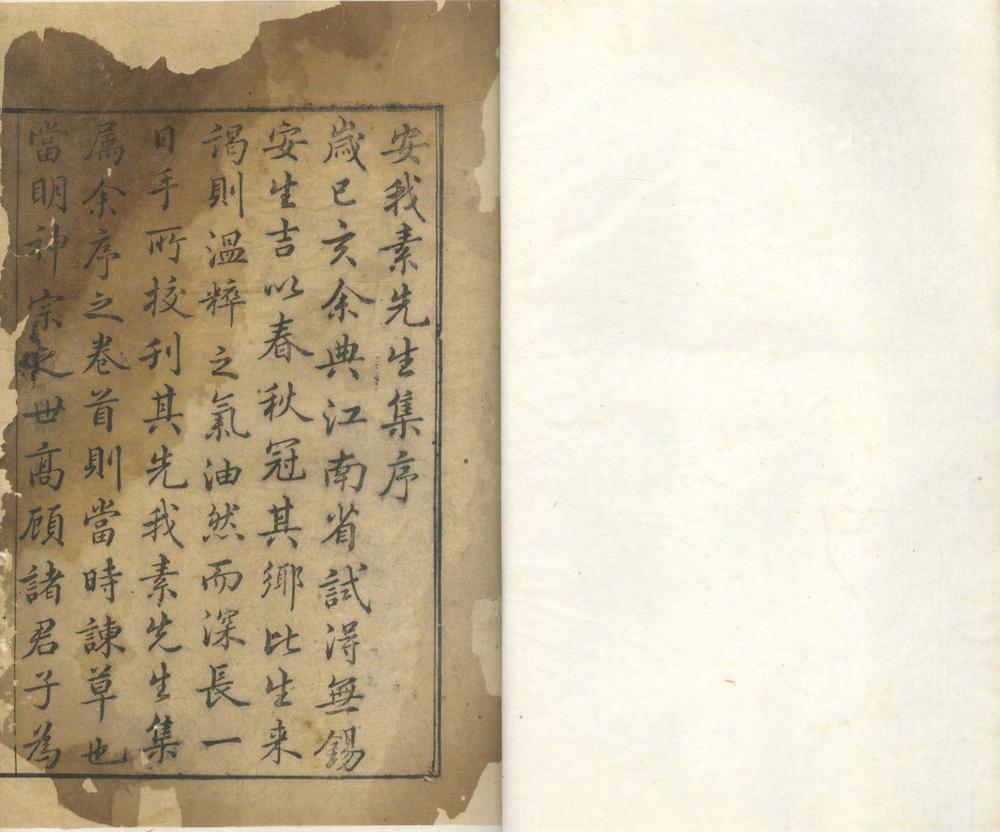 安我素先生集序
歲已亥余典江南省試得無錫
安生吉以春秋冠其鄉比生来
謁則溫粹之氣油然而深長一
日手所挍刋其先我素先生集
属余序之卷首則當時諫草也
當明神宗之世高顾諸君子為